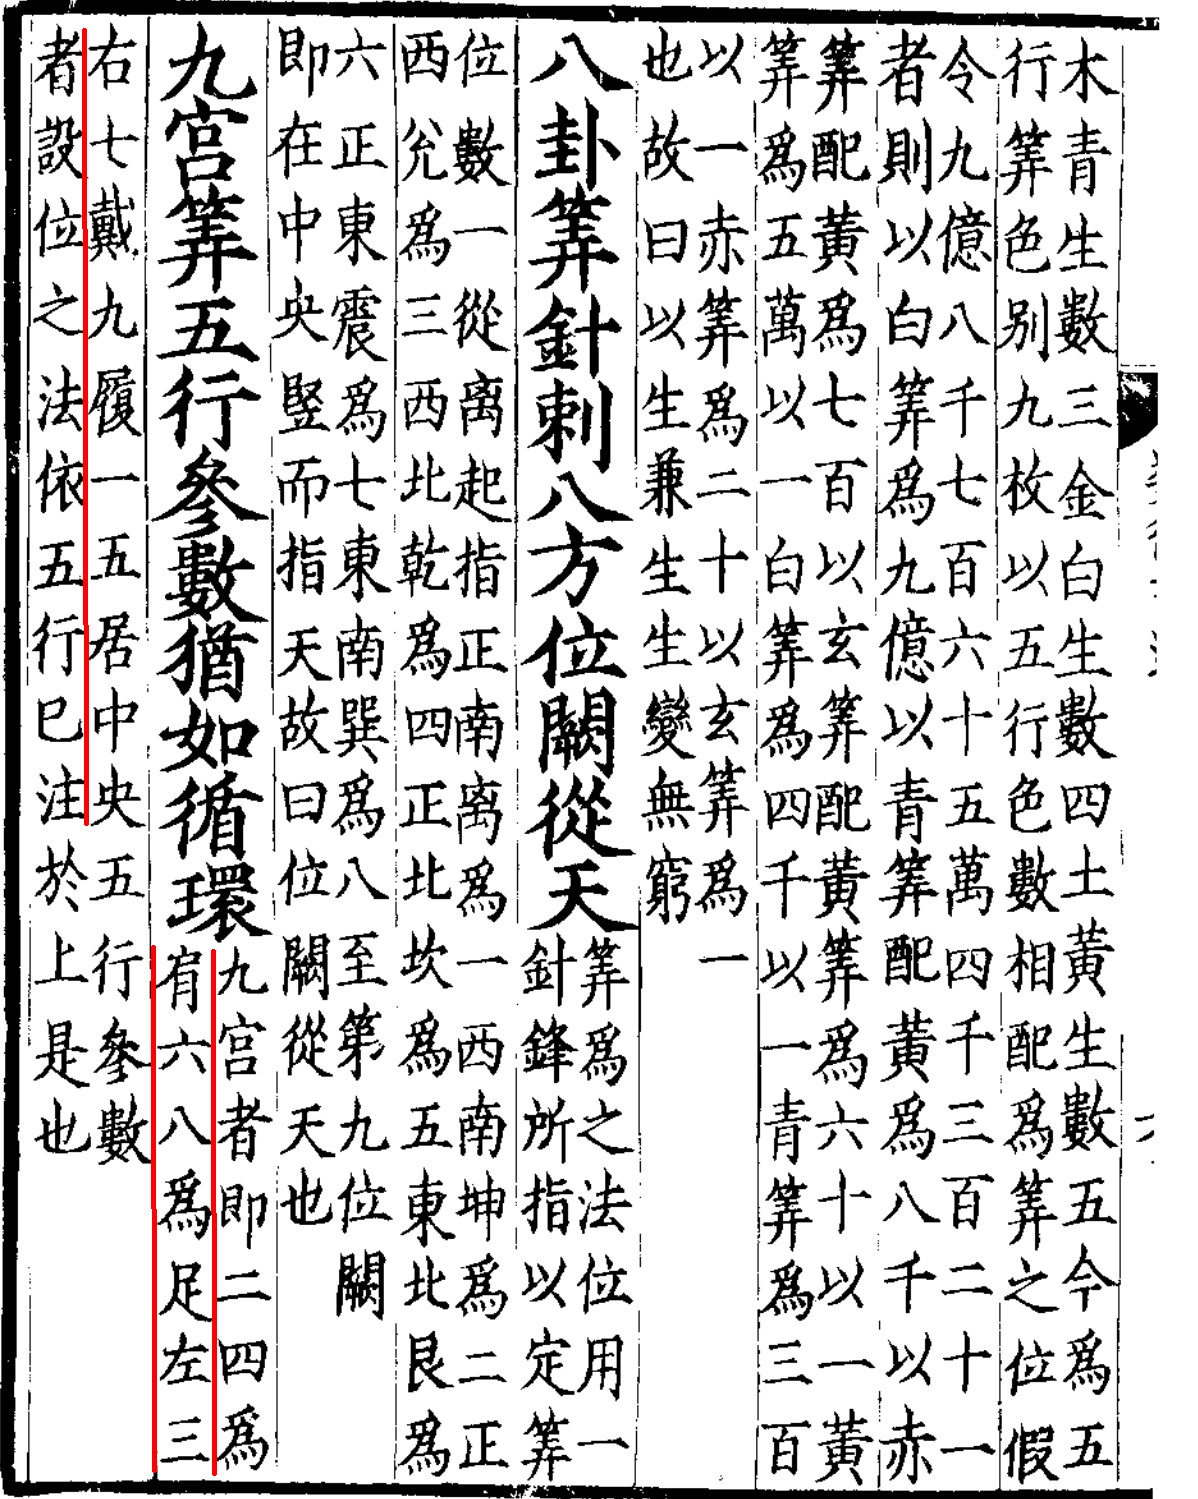 木青生數三金白生數四土黃生數五今爲五
行筭色别九枚以五行色數相配爲筭之位假
令九億八千七百六十五萬四千三百二十一
者則以白筭爲九億以青筭配黃爲八千以赤
筭配黃爲七百以玄筭配黃筭爲六十以一黃
筭爲五萬以一白筭爲四千以一青筭爲三百
以一赤筭爲二十以玄筭爲一
也故曰以生兼生生變無窮
八卦筭針刺八方位闕從天
筭爲之法位用一
針鋒所指以定筭
位數一從离起指正南离爲一西南坤爲二正
西兊爲三西北乾爲四正北坎爲五東北艮爲
六正東震爲七東南巽爲八至第九位闕
即在中央竪而指天故曰位闕從天也
九宮筭五行參數猶如循環
九宮者即二四爲
肩六八爲足左三
右七戴九履一五居中央五行參數
者設位之法依五行巳注於上是也